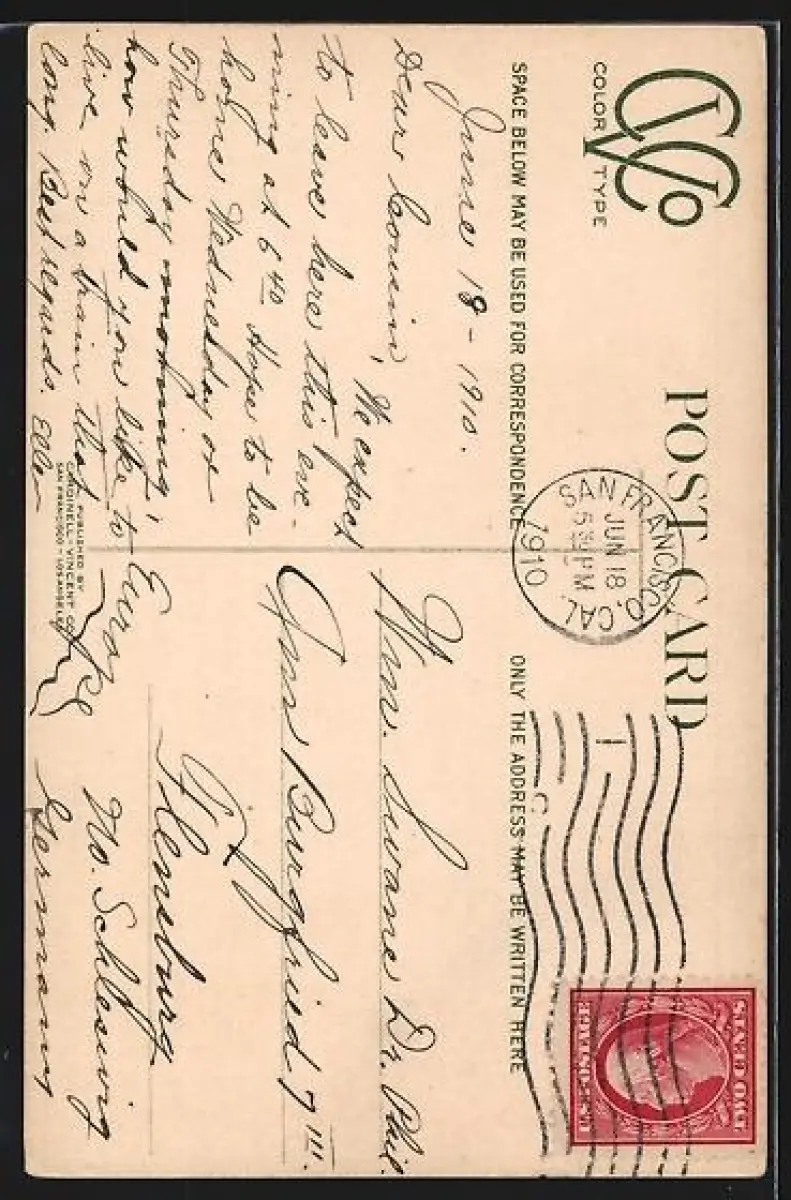 CVCo
COLOR TYPE
POST CARD
SPACE BELOW MAY BE USED FOR CORRESPONDENCE
ONLY THE ADDRESS MAY BE WRITTEN HERE
SAN FRANCISCO, CAL.
JUN 18
5 30 PM
1910
TWO CENTS
U.S. POSTAGE
June 18 - 1910.
Dear Cousin, We expect
to leave here this eve-
ning at 6 40 Hope to be
home Wednesday or
Thursday morning,
how would you like to
live on a train that
long. Best regards. Ella
Wm. Iwane Dr. Phil.
Am Burgfried 7 III.
Flensburg
No. Schleswig
Germany
Europe
PUBLISHED BY
CARDINELL-VINCENT CO.
SAN FRANCISCO - LOS ANGELES